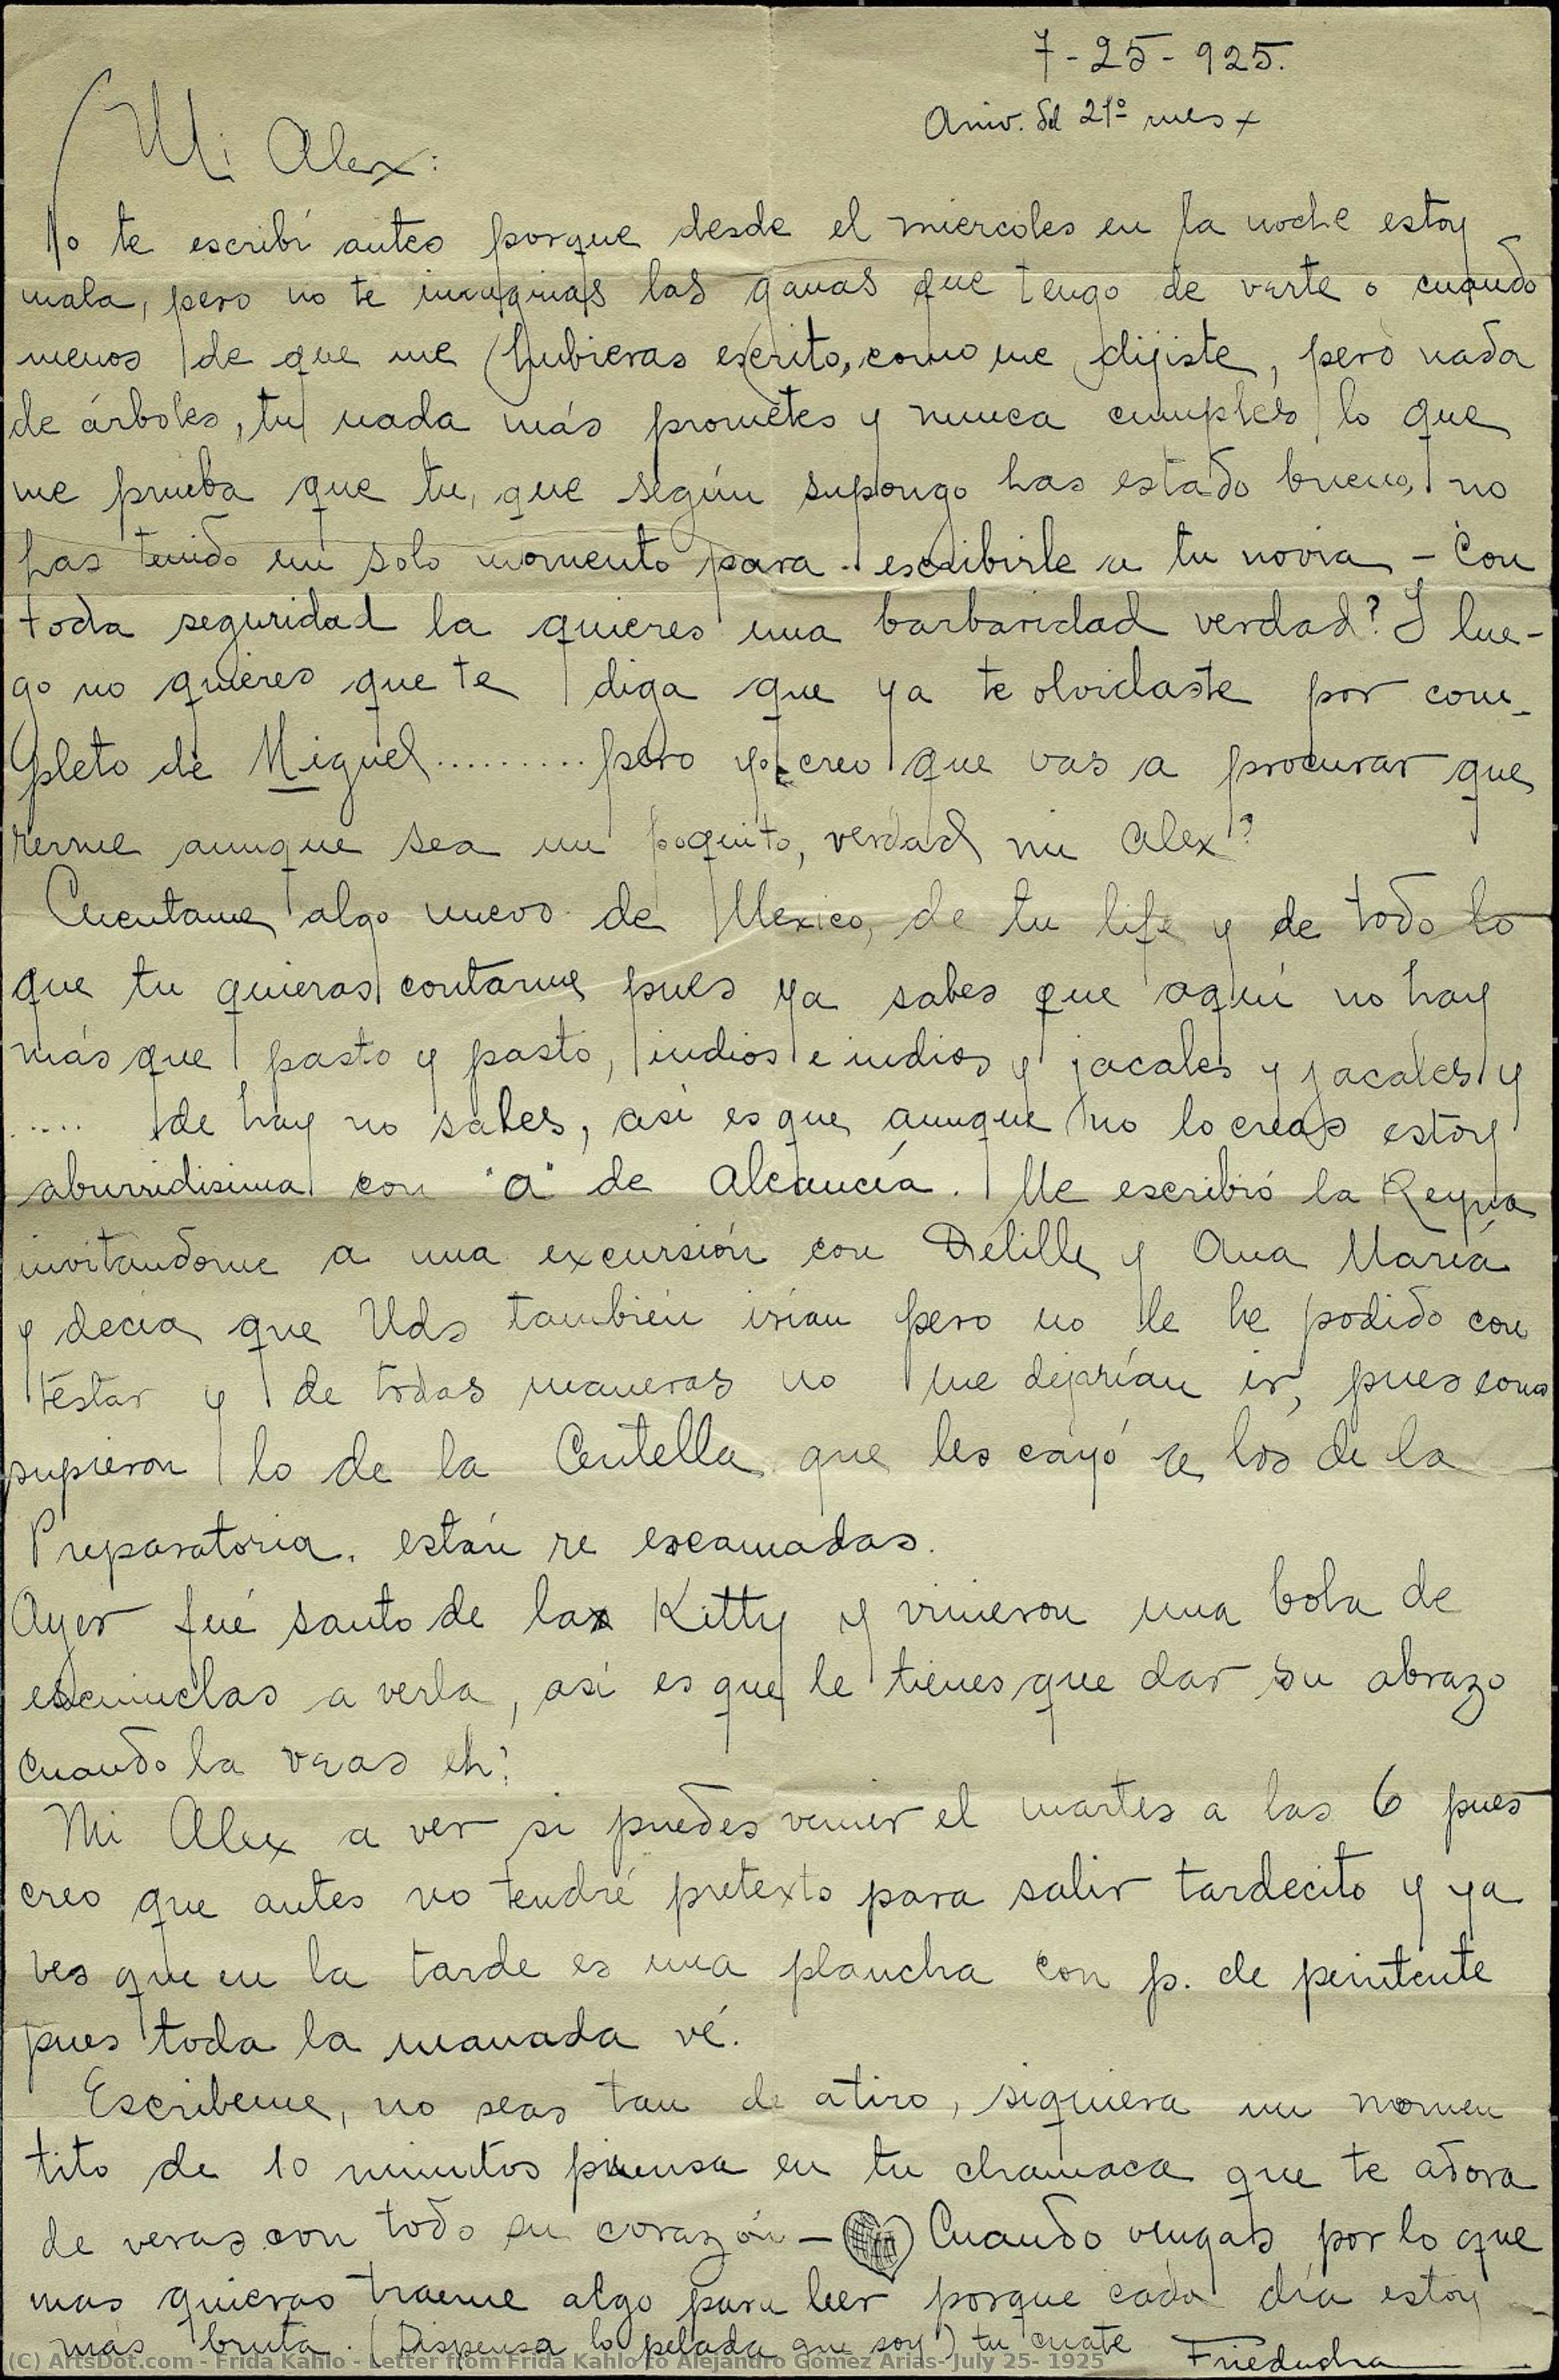 7-25-925.
Aniv. del 21º mes x
Mi Alex:
No te escribí antes porque desde el miercoles en la noche estoy
mala, pero no te imaginas las ganas que tengo de verte o cuando
menos de que me hubieras escrito, como me dijiste, pero nada
de árboles, tu nada más prometes y nunca cumples lo que
me prueba que tu, que según supongo has estado bueno, no
has tenido un solo momento para escribirle a tu novia - Con
toda seguridad la quieres una barbaridad verdad? Y lue-
go no quieres que te diga que ya te olvidaste por com-
pleto de Miguel ......... pero yo creo que vas a procurar que
rerme aunque sea un poquito, verdad mi Alex?
Cuentame algo nuevo de Mexico, de tu life y de todo lo
que tu quieras contarme pues ya sabes que aquí no hay
más que pasto y pasto, indios e indios y jacales y jacales y
..... de hay no sales, así es que aunque no lo creas estoy
aburridisima con "a" de alcancía. Me escribió la Reyna
invitandome a una excursión con Delille y Ana María
y decía que Uds también irían pero no le he podido con
testar y de todas maneras no me dejarían ir, pues como
supieron lo de la Centella que les cayó a los de la
Preparatoria. están re escamadas.
Ayer fué santo de la Kitty y vinieron una bola de
escuinclas a verla, así es que le tienes que dar su abrazo
cuando la veas eh?
Mi Alex a ver si puedes venir el martes a las 6 pues
creo que antes no tendré pretexto para salir tardecito y ya
ves que en la tarde es una plancha con p. de penitente
pues toda la manada vé.
Escribeme, no seas tan de atiro, siquiera un momen
tito de 10 minutos piensa en tu chamaca que te adora
de veras con todo su corazón - Cuando vengas por lo que
mas quieras traeme algo para leer porque cada día estoy
más bruta. (Dispensa lo pelada que soy) tu cuate Frieducha
(C) ArtsDot.com - Frida Kahlo - Letter from Frida Kahlo to Alejandro Gómez Arias- July 25- 1925